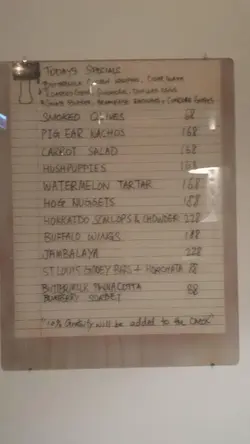 TODAYS SPECIALS
SMOKED OLIVES 68
PIG EAR NACHOS 168
CARROT SALAD 168
HUSHPUPPIES 168
WATERMELON TARTAR 168
HOG NUGGETS 168
HOKKAIDO SCALLOPS & CHOWDER 228
BUFFALO WINGS 188
JAMBALAYA 228
ST LOUIS GOOEY BARS + HORCHATA 88
BUTTERMILK PANNACOTTA 88
BLUEBERRY SORBET
"10% Gratuity will be added to the check"